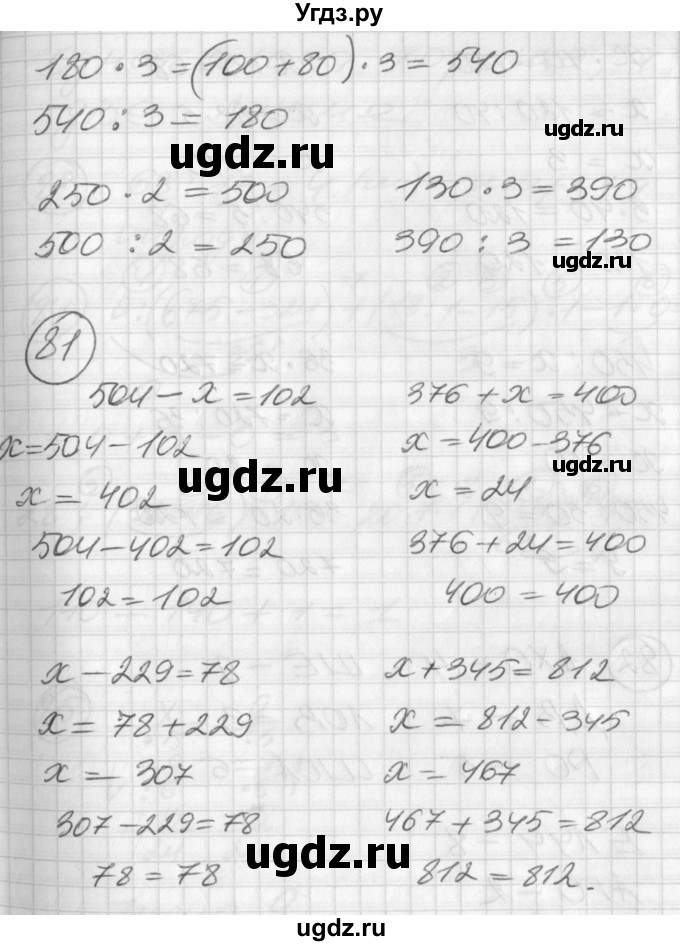 Угдз.ру
180 · 3 = (100 + 80) · 3 = 540
540 : 3 = 180
ugdz.ru
ugdz.ru
250 · 2 = 500
130 · 3 = 390
500 : 2 = 250
390 : 3 = 130
ugdz.ru
81
504 - x = 102
376 + x = 400
x = 504 - 102
x = 400 - 376
ugdz.ru
ugdz.ru
x = 402
x = 24
504 - 402 = 102
376 + 24 = 400
102 = 102
400 = 400
x - 229 = 78
x + 345 = 812
x = 78 + 229
x = 812 - 345
x = 307
x = 467
307 - 229 = 78
467 + 345 = 812
ugdz.ru
ugdz.ru
78 = 78
812 = 812.
ugdz.ru